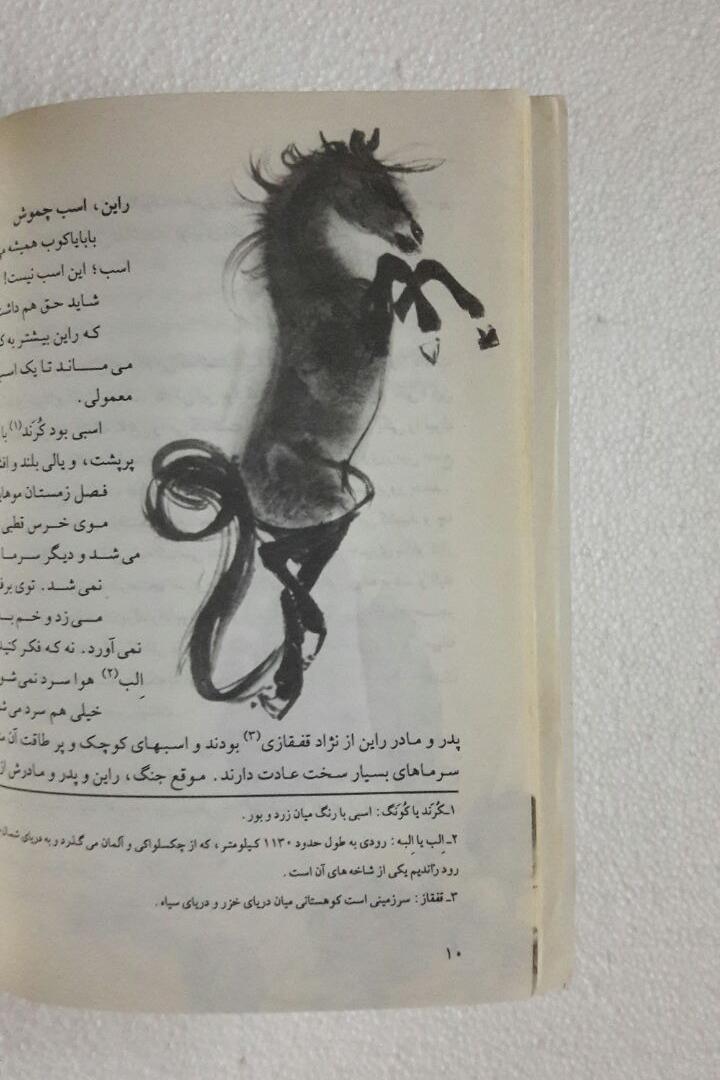 راین، اسب چموش
بابایاکوب همیشه
اسب؛ این اسب نیست!
شاید حق هم داشت
که راین بیشتر به
می مـــانـد تا یک اسب
معمولی.
اسبی بود کُرَند(۱) با
پرپشت، و یالی بلند و
فصل زمستان موهای
موی خرس قطبی
می شـد و دیگر سرما
نمی شد. توی برف
مـی زد و خـم بـه
نمی آورد. نه که فکر کنید
اِلب(۲) هوا سرد نمی شود
خیلی هم سرد می شود
پدر و مادر راین از نژاد قفقازی(۳) بودند و اسبهای کوچک و پر طاقت آن
سرماهای بسیار سخت عادت دارند. موقع جنگ، راین و پدر و مادرش از
۱ـ کُرَند یا کُونَگ: اسبی با رنگ میان زرد و بور.
۲ـ اِلب یا اِلبه: رودی به طول حدود ۱۱۳۰ کیلومتر، که از چکسلواکی و آلمان می گذرد و به دریای شمال
رود راندیم یکی از شاخه های آن است.
۳ـ قفقاز: سرزمینی است کوهستانی میان دریای خزر و دریای سیاه.
۱۰